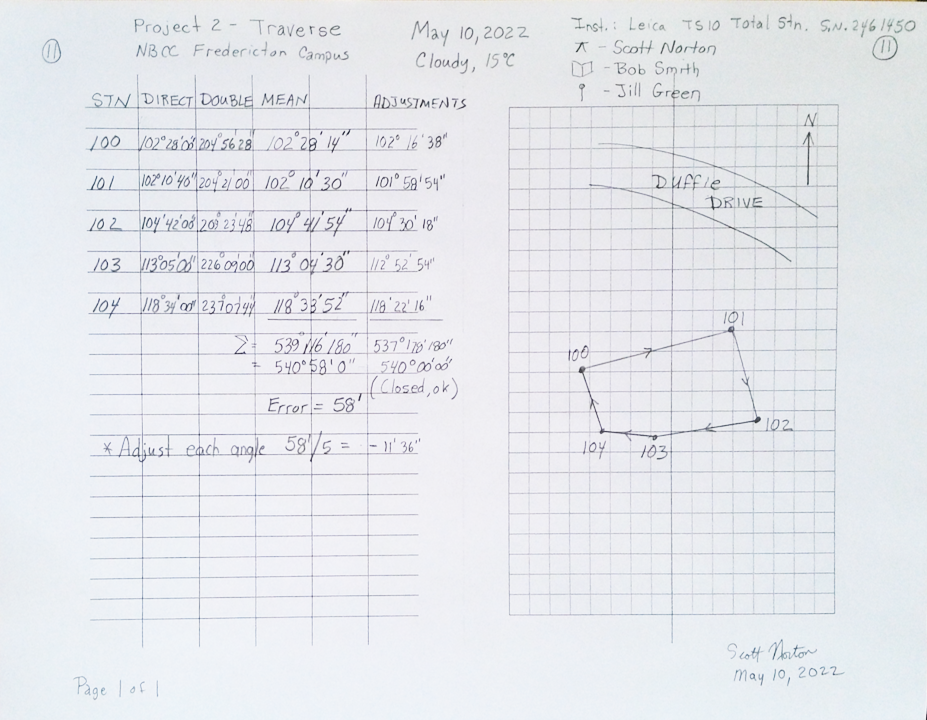 Project 2 - Traverse
NBCC Fredericton Campus
May 10, 2022
Cloudy, 15°C
Inst.: Leica TS10 Total Stn. S.N. 2461450
- Scott Norton
- Bob Smith
- Jill Green
11
11
STN DIRECT DOUBLE MEAN ADJUSTMENTS
100 102°28'00" 204°56'28" 102°28'14" 102°16'38"
101 102°10'40" 204°21'00" 102°10'30" 101°58'54"
102 104°42'00" 209°23'48" 104°41'54" 104°30'18"
103 113°05'00" 226°09'00" 113°04'30" 112°52'54"
104 118°34'00" 237°07'44" 118°33'52" 118°22'16"
Σ = 539°116'180" 537°178'180"
= 540°58'0" 540°00'00"
(Closed, ok)
Error = 58'
* Adjust each angle 58'/5 = -11'36"
N
Duffie
DRIVE
101
100
102
104
103
Scott Norton
May 10, 2022
Page 1 of 1